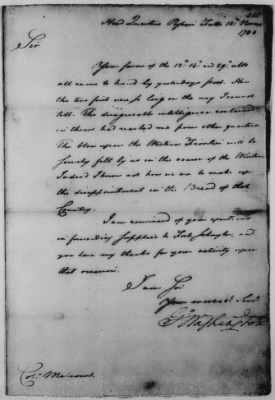 Head Quarters Passaic Falls 12th Novr
1780
Sir
Your favors of the 12th 14th and 29th ulto
all came to hand by yesterdays post. How
the two first were so long on the way I cannot
tell. The disagreeable intelligence contained
in them had reached me from other quarters.
The blow upon the Western Frontier will be
severely felt by us in the course of the Winter.
Indeed I know not how we are to make up
the disappointment in the Bread of that
Country.
I am convinced of your exertions
in forwarding supplies to Fort Schuyler, and
you have my thanks for your activity upon
that occasion.
I am Sir
Your most obt Servt
Go Washington
Colo Malcom